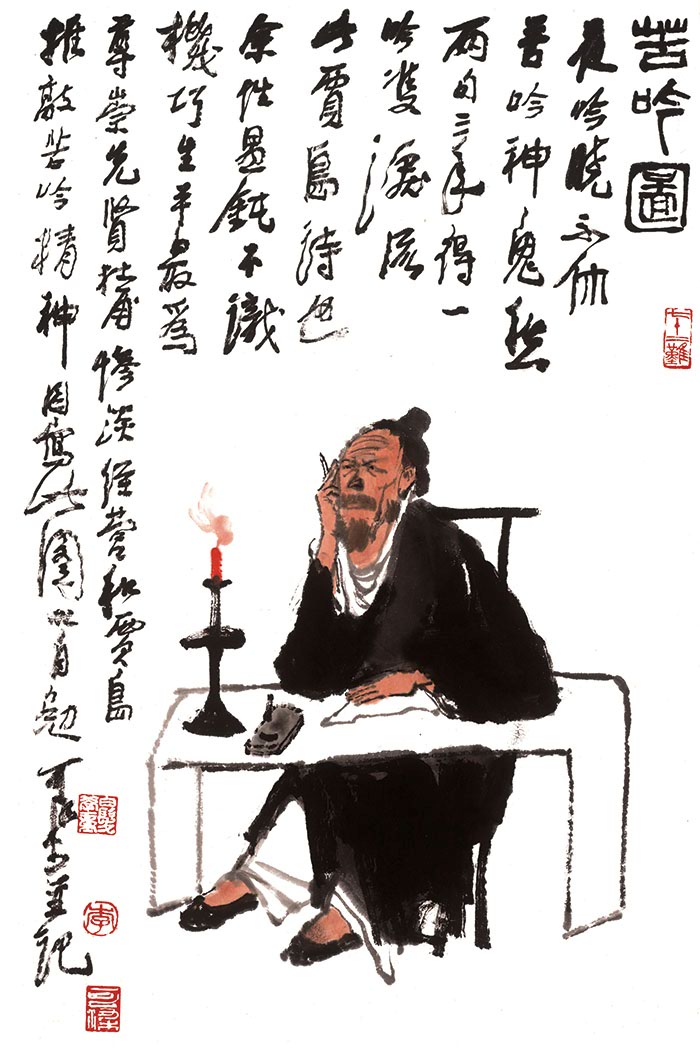 苦吟圖
夜吟曉不休
苦吟神鬼愁
兩句三年得一
吟雙淚流
此賈島詩也
余性愚鈍不識
機巧生平最為
尊崇先賢杜甫慘淡經營和賈島
推敲苦吟精神因寫此圖以自勉可染並記
七十二難
白髮學童
李
可染